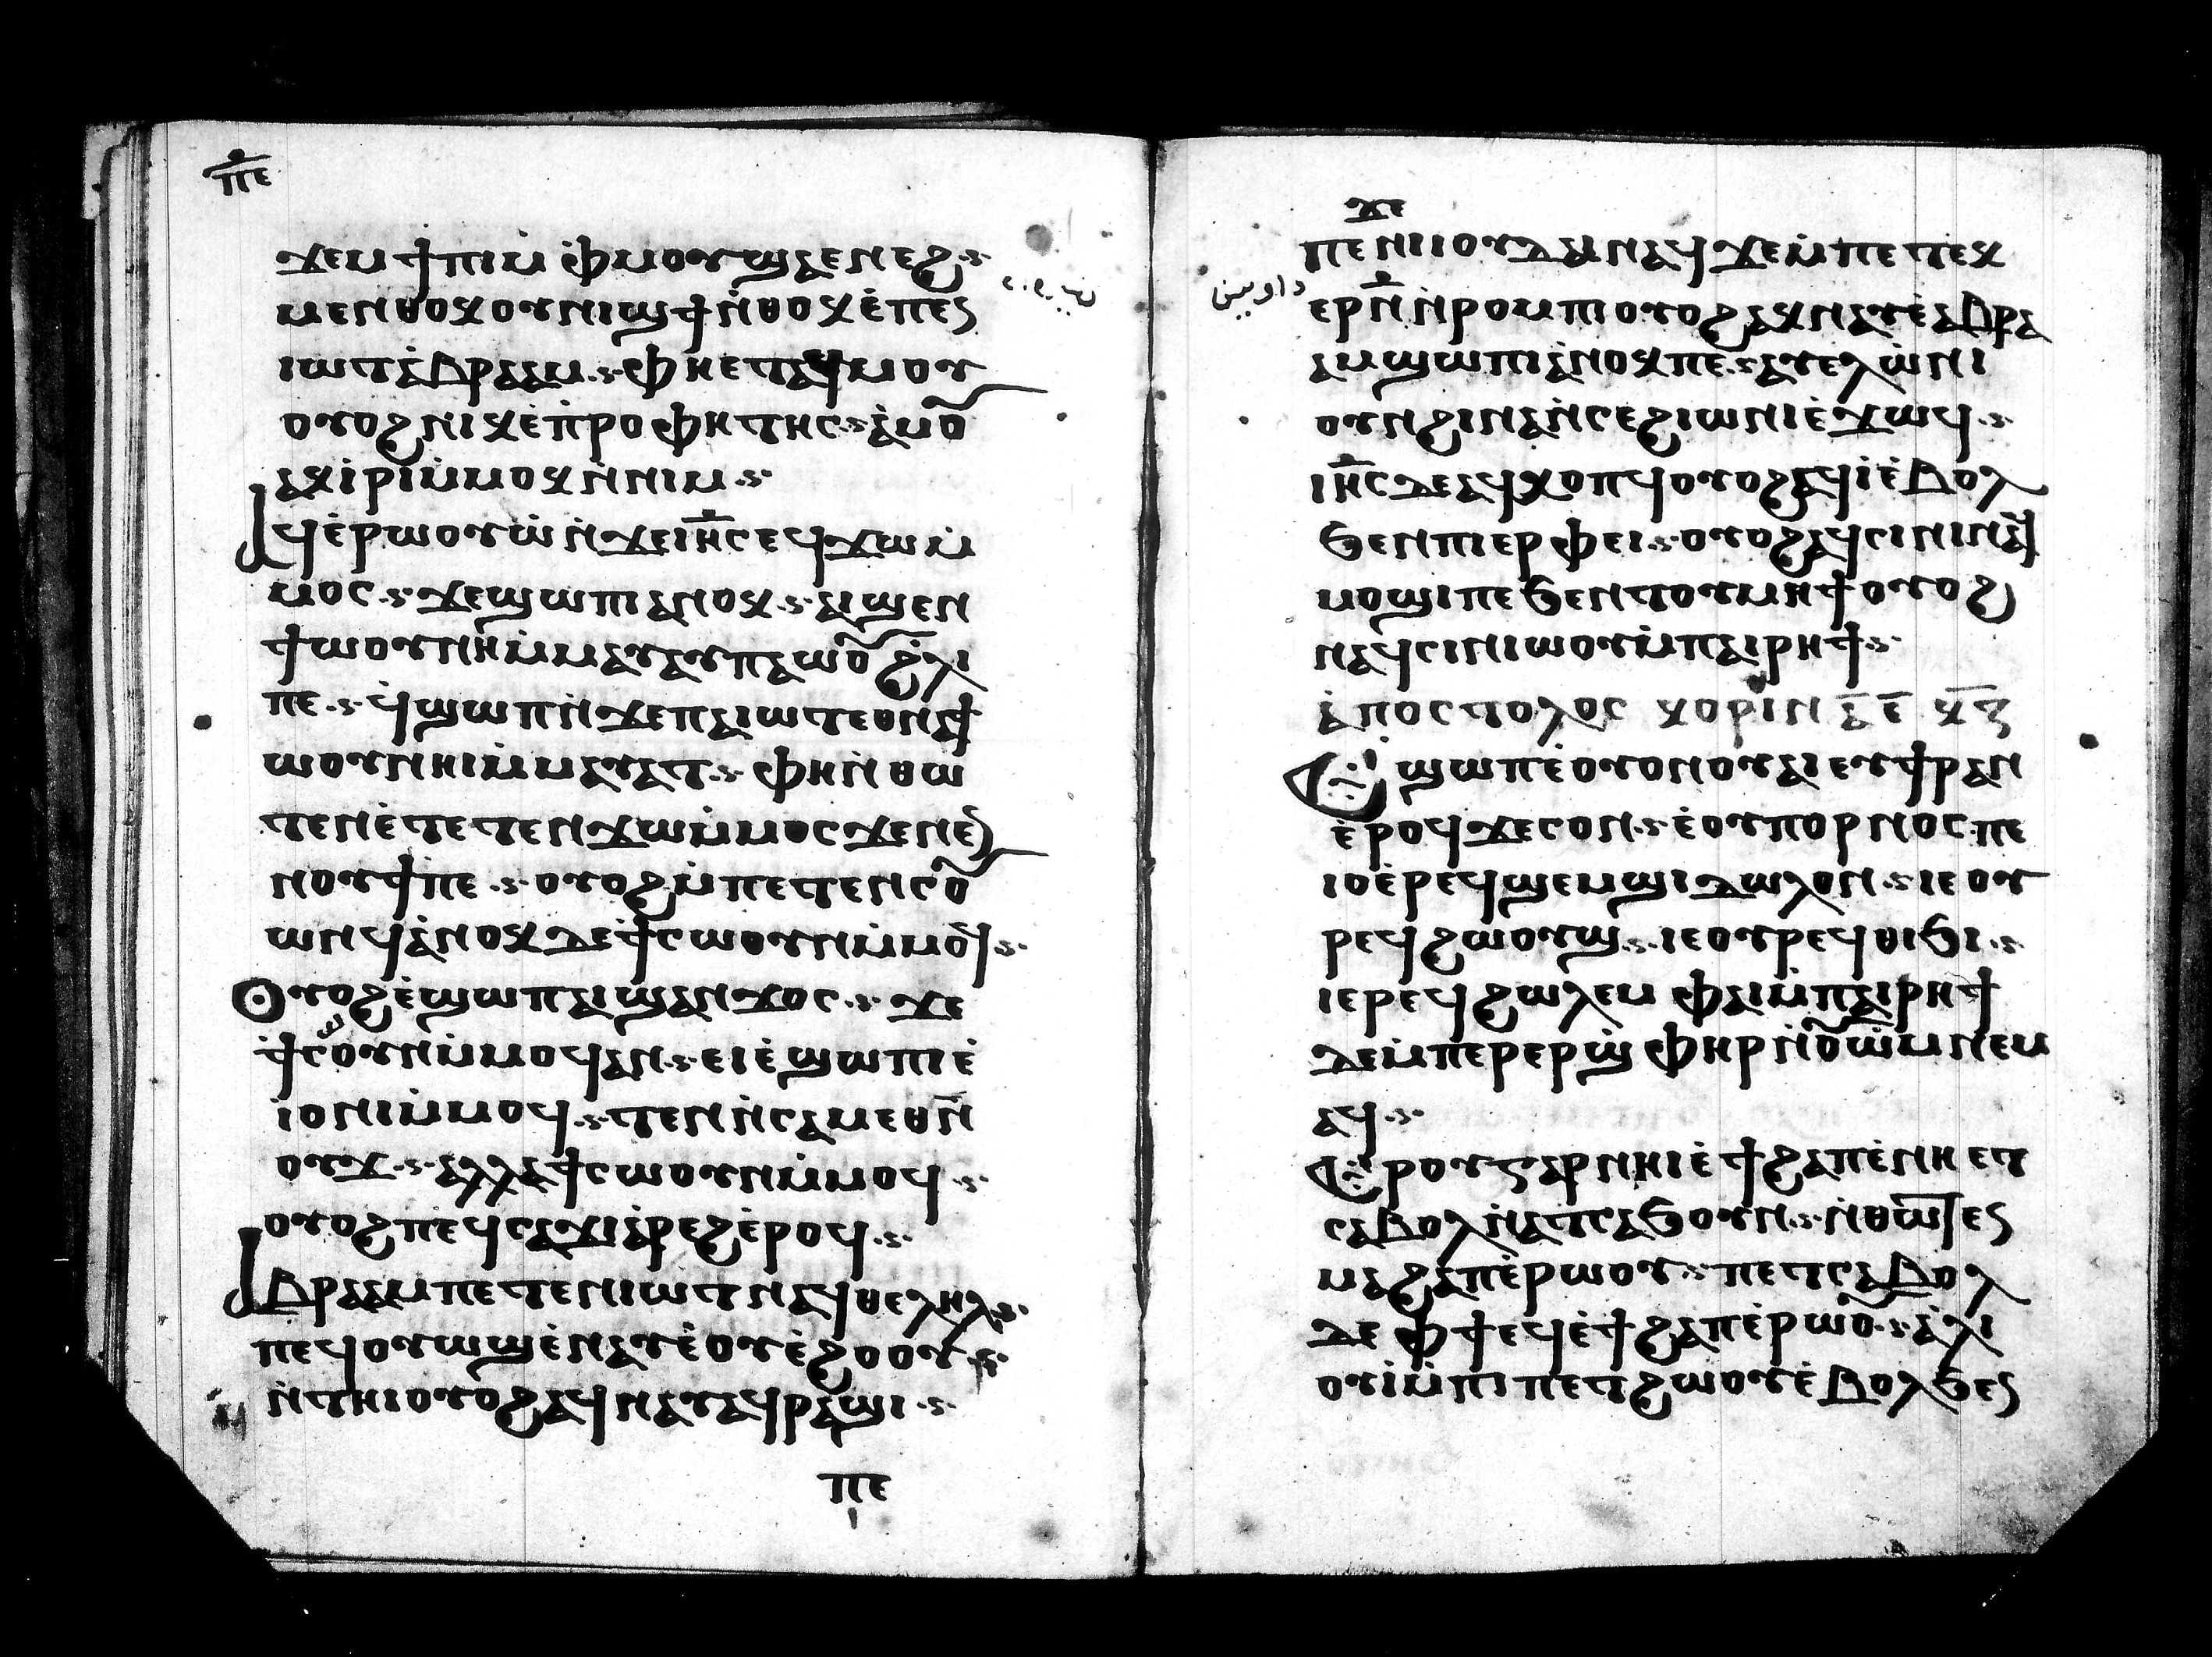 ⲡ̅ⲉ̅
ϫⲉⲙϯⲡⲓⲙ̀ⲫ̀ⲙⲟⲩϣⲁⲉⲛⲉϩ
ⲙⲉⲛⲑⲟⲕⲟⲩⲛⲓϣϯⲛ̀ⲑⲟⲕⲉ̀ⲡⲉⲛ
ⲓⲱⲧⲁ̀ⲃⲣⲁⲁⲙ ⲫⲏⲉⲧⲁϥⲙⲟⲩ
ⲟⲩⲟϩⲛⲓⲕⲉⲡ̀ⲣⲟⲫⲏⲧⲏⲥ ⲁ̀ⲙⲟⲩ
ⲁⲕⲓ̀ⲣⲓⲙ̀ⲙⲟⲕⲛ̀ⲛⲓⲙ
ⲁϥⲉ̀ⲣⲱⲟⲩⲱ̀ⲛ̀ϫⲉⲓⲏ̅ⲥ̅ⲉϥϫⲱⲙ̀
ⲙⲟⲥ ϫⲉϣⲱⲡⲓⲁⲛⲟⲕ ⲁⲓϣⲉⲛ
ϯⲱⲟⲩⲛⲏⲓⲙ̀ⲙⲁⲩⲁⲧⲡⲁⲱⲟⲩϩ̀ⲗⲓ
ⲡⲉ ϥ̀ϣⲱⲡⲛ̀ϫⲉⲡⲁⲓⲱⲧⲉⲑⲛⲁϯ
ⲱⲟⲩⲛⲏⲓⲙ̀ⲙⲁⲩⲁⲧ ⲫⲏⲛ̀ⲑⲱ
ⲧⲉⲛⲉ̀ⲧⲉⲧⲉⲛϫⲱⲙ̀ⲙⲟⲥϫⲉⲛⲉ̀
ⲛⲟⲩϯⲡⲉ ⲟⲩⲟϩⲙ̀ⲡⲉⲧⲉⲛⲥⲟⲩ
ⲱⲛϥⲁ̀ⲛⲟⲕⲇⲉϯⲥⲱⲟⲩⲛⲙ̀ⲙⲟϥ
ⲟⲩⲟϩⲉ̀ϣⲱⲡⲁⲓϣⲁⲛϫⲟⲥ ϫⲉ
ϯⲥⲱⲟⲩⲛⲙ̀ⲙⲟϥⲁⲛ ⲉⲓⲉ̀ϣⲱⲡⲓⲉ̀
ⲓ̀ⲟⲛⲓⲙ̀ⲙⲟϥ ⲧⲉⲛⲛ̀ⲥⲁⲙⲉⲑⲛ̅
ⲟⲩϫ ⲁⲗⲗⲁϯⲥⲱⲟⲩⲛⲙ̀ⲙⲟϥ
ⲟⲩⲟϩⲡⲉϥⲥⲁϫⲓⲁ̀ⲣⲉϩⲉ̀ⲣⲟϥ
ⲁⲃⲣⲁⲁⲙⲡⲉⲧⲉⲛⲓⲱⲧⲛⲁϥⲑⲉⲗⲏⲗ
ⲡⲉϥⲟⲩⲱϣⲉ̀ⲛⲁⲩⲉ̀ⲟⲩⲉ̀ϩⲟⲟⲩ
ⲛ̀ⲧⲏⲓⲟⲩⲟϩⲁϥⲛⲁⲩⲁϥⲣⲁϣⲓ
ⲡⲉ
ϫⲉ
ⲡⲉⲛⲓⲓⲟⲩⲇⲁⲓⲛⲁϥϫⲉⲙ̀ⲡⲉⲧⲉⲕ
ⲉⲣⲛ̅ⲛ̀ⲣⲟⲙⲡⲓⲟⲩⲟϩⲁⲕⲛⲁⲩⲉ̀ⲁⲃⲣⲁ
ⲁⲙϣⲱⲡⲓⲁ̀ⲛⲟⲕⲡⲉ ⲁⲩⲉⲗⲱ̀ⲛⲓ
ⲟⲩⲛϩⲓⲛⲁⲛ̀ⲥⲉϩⲓⲱⲛⲓⲉ̀ϫⲱϥ
ⲓⲏ̅ⲥ̅ⲇⲉⲁϥⲭⲟⲡϥⲟⲩⲟϩⲁϥⲓ̀ⲉ̀ⲃⲟⲗ
ϧⲉⲛⲡⲓⲉⲣⲫⲉⲓ ⲟⲩⲟϩⲁϥⲥⲓⲛⲓⲛⲁϥ
ⲙⲟϣⲓⲡⲉϧⲉⲛⲧⲟⲩⲙⲏϯⲟⲩⲟϩ
ⲛⲁϥⲥⲓⲛⲓⲱⲟⲩⲙ̀ⲡⲁⲓⲣⲏϯ
ⲁ̀ⲡⲟⲥⲧⲟⲗⲟⲥ ⲕⲟⲣⲓⲛ ⲁ̅ ⲉ̅ ⲕ̅ⲍ̅
ⲉϣⲱⲡⲉ̀ⲟⲩⲟⲛⲟⲩⲁⲓⲉⲩϯⲣⲁⲛ
ⲉ̀ⲣⲟϥϫⲉⲥⲟⲛ ⲉ̀ⲟⲩⲡⲟⲣⲛⲟⲥⲡⲉ
ⲓⲟⲉ̀ⲣⲉϥϣⲉⲙϣⲓⲇⲱⲗⲟⲛ ⲓⲉⲟⲩ
ⲣⲉϥϩⲱⲟⲩϣ ⲓⲉⲟⲩⲣⲉϥⲑⲓϧⲓ
ⲓⲉⲣⲉϥϩⲱⲗⲉⲙ ⲫⲁⲓⲙ̀ⲡⲁⲓⲣⲏϯ
ⲇⲉⲙ̀ⲡⲉⲣⲉⲣϣ̀ⲫⲏⲣⲛ̀ⲟⲩⲱ̀ⲙⲛⲉⲙ
ⲁϥ
ⲉⲣⲟⲩⲅⲁⲣⲛⲏⲓⲉ̀ϯϩⲁⲡⲉ̀ⲛⲏⲉⲧ
ⲥⲁⲃⲟⲗⲛ̀ⲁⲧⲥⲁϧⲟⲩⲛ ⲛ̀ⲑⲱⲧⲉⲛ
ⲙⲁϩⲁⲡⲉ̀ⲣⲱⲟⲩ ⲡⲉⲧⲥⲁⲃⲟⲗ
ⲇⲉⲫϯⲉϥⲉ̀ϯϩⲁⲡⲉ̀ⲣⲱⲟⲩ ⲁ̀ⲗⲓ
ⲟⲩⲓ̀ⲙ̀ⲡⲓⲡⲉⲧϩⲱⲟⲩⲉ̀ⲃⲟⲗϧⲉⲛ